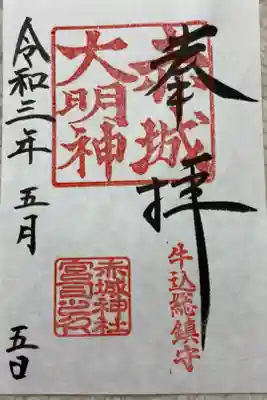 奉拝
赤城
大明神
牛込総鎮守
赤城神社
宮司之印
令和三年五月五日